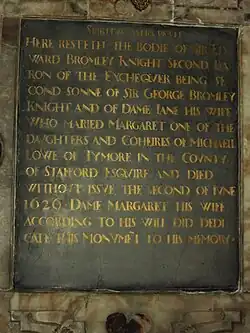 HERE RESTETH THE BODIE OF SIR ED
WARD BROMLEY KNIGHT SECOND BA
RON OF THE EXCHEQVER BEING SE
COND SONNE OF SIR GEORGE BROMLEY
KNIGHT AND OF DAME IANE HIS WIFE
WHO MARIED MARGARET ONE OF THE
DAVGHTERS AND COHEIRES OF MICHAELL
LOWE OF TYMORE IN THE COVNTY
OF STAFFORD ESQVIRE AND DIED
WITHOVT ISSVE THE SECOND OF IVNE
1626 · DAME MARGARET HIS WIFE
ACCORDING TO HIS WILL DID DEDI
CATE THIS MONVMET TO HIS MEMORY ·